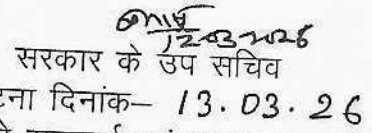 12-03-2026
सरकार के उप सचिव
टना दिनांक– 13.03.26